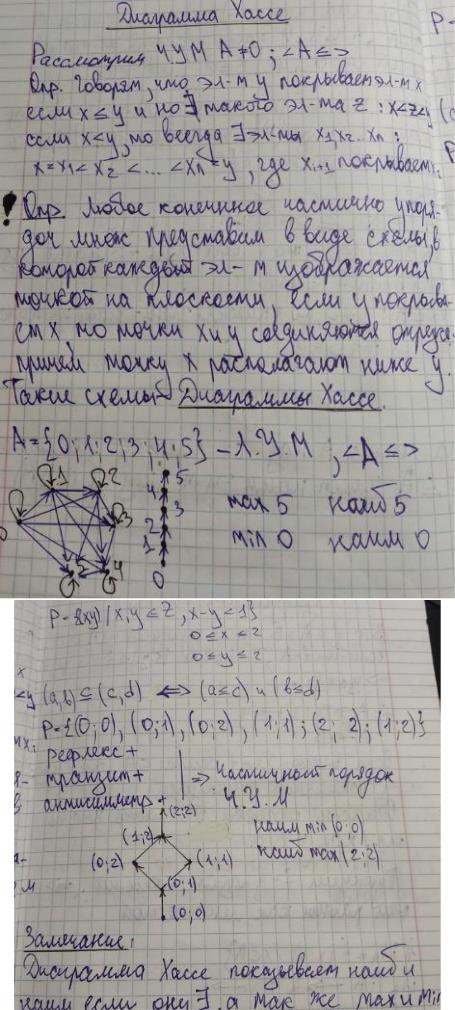 Диаграмма Хассе
Р-
Рассмотрим Ч.У.М А≠0; <А≤>
Опр. Говорят, что эл-т у покрывает эл-т х
если х≤у и но ∃ такого эл-та z : x<z<y
если х<у, то всегда ∃ эл-ты x₁,x₂..xₙ:
x=x₁<x₂<...<xₙ=y, где xᵢ₊₁ покрывает xᵢ
! Опр. Любое конечнное частично упоря-
доч множ представим в виде схемы, в
которой каждый эл-т изображается
точкой на плоскости, если у покрыва-
ет х, то точки х и у соединяются отрезк.
причем точку х располагают ниже у.
Такие схемы - Диаграммы Хассе.
А={0;1;2;3;4;5} - Л.У.М ; <А≤>
1 2 3 4 5
5
4
3
2
1
0
max 5 наиб 5
min 0 наим 0
P={(xy)/x,y≤Z, x-y<1}
0≤x≤2
0≤y≤2
(a,b)≤(c,d) ⟺ (a≤c) и (b≤d)
P={(0;0), (0;1), (0;2), (1;1); (2;2); (1;2)}
рефлекс+
транзит+ => частичный порядок
антисимметр+ Ч.У.М
(2;2)
(1;2) наим min(0;0)
(0;2) (1;1) наиб max(2;2)
(0;1)
(0;0)
Замечание:
Диаграмма Хассе показывает наиб и
наим если они ∃, а так же max и min